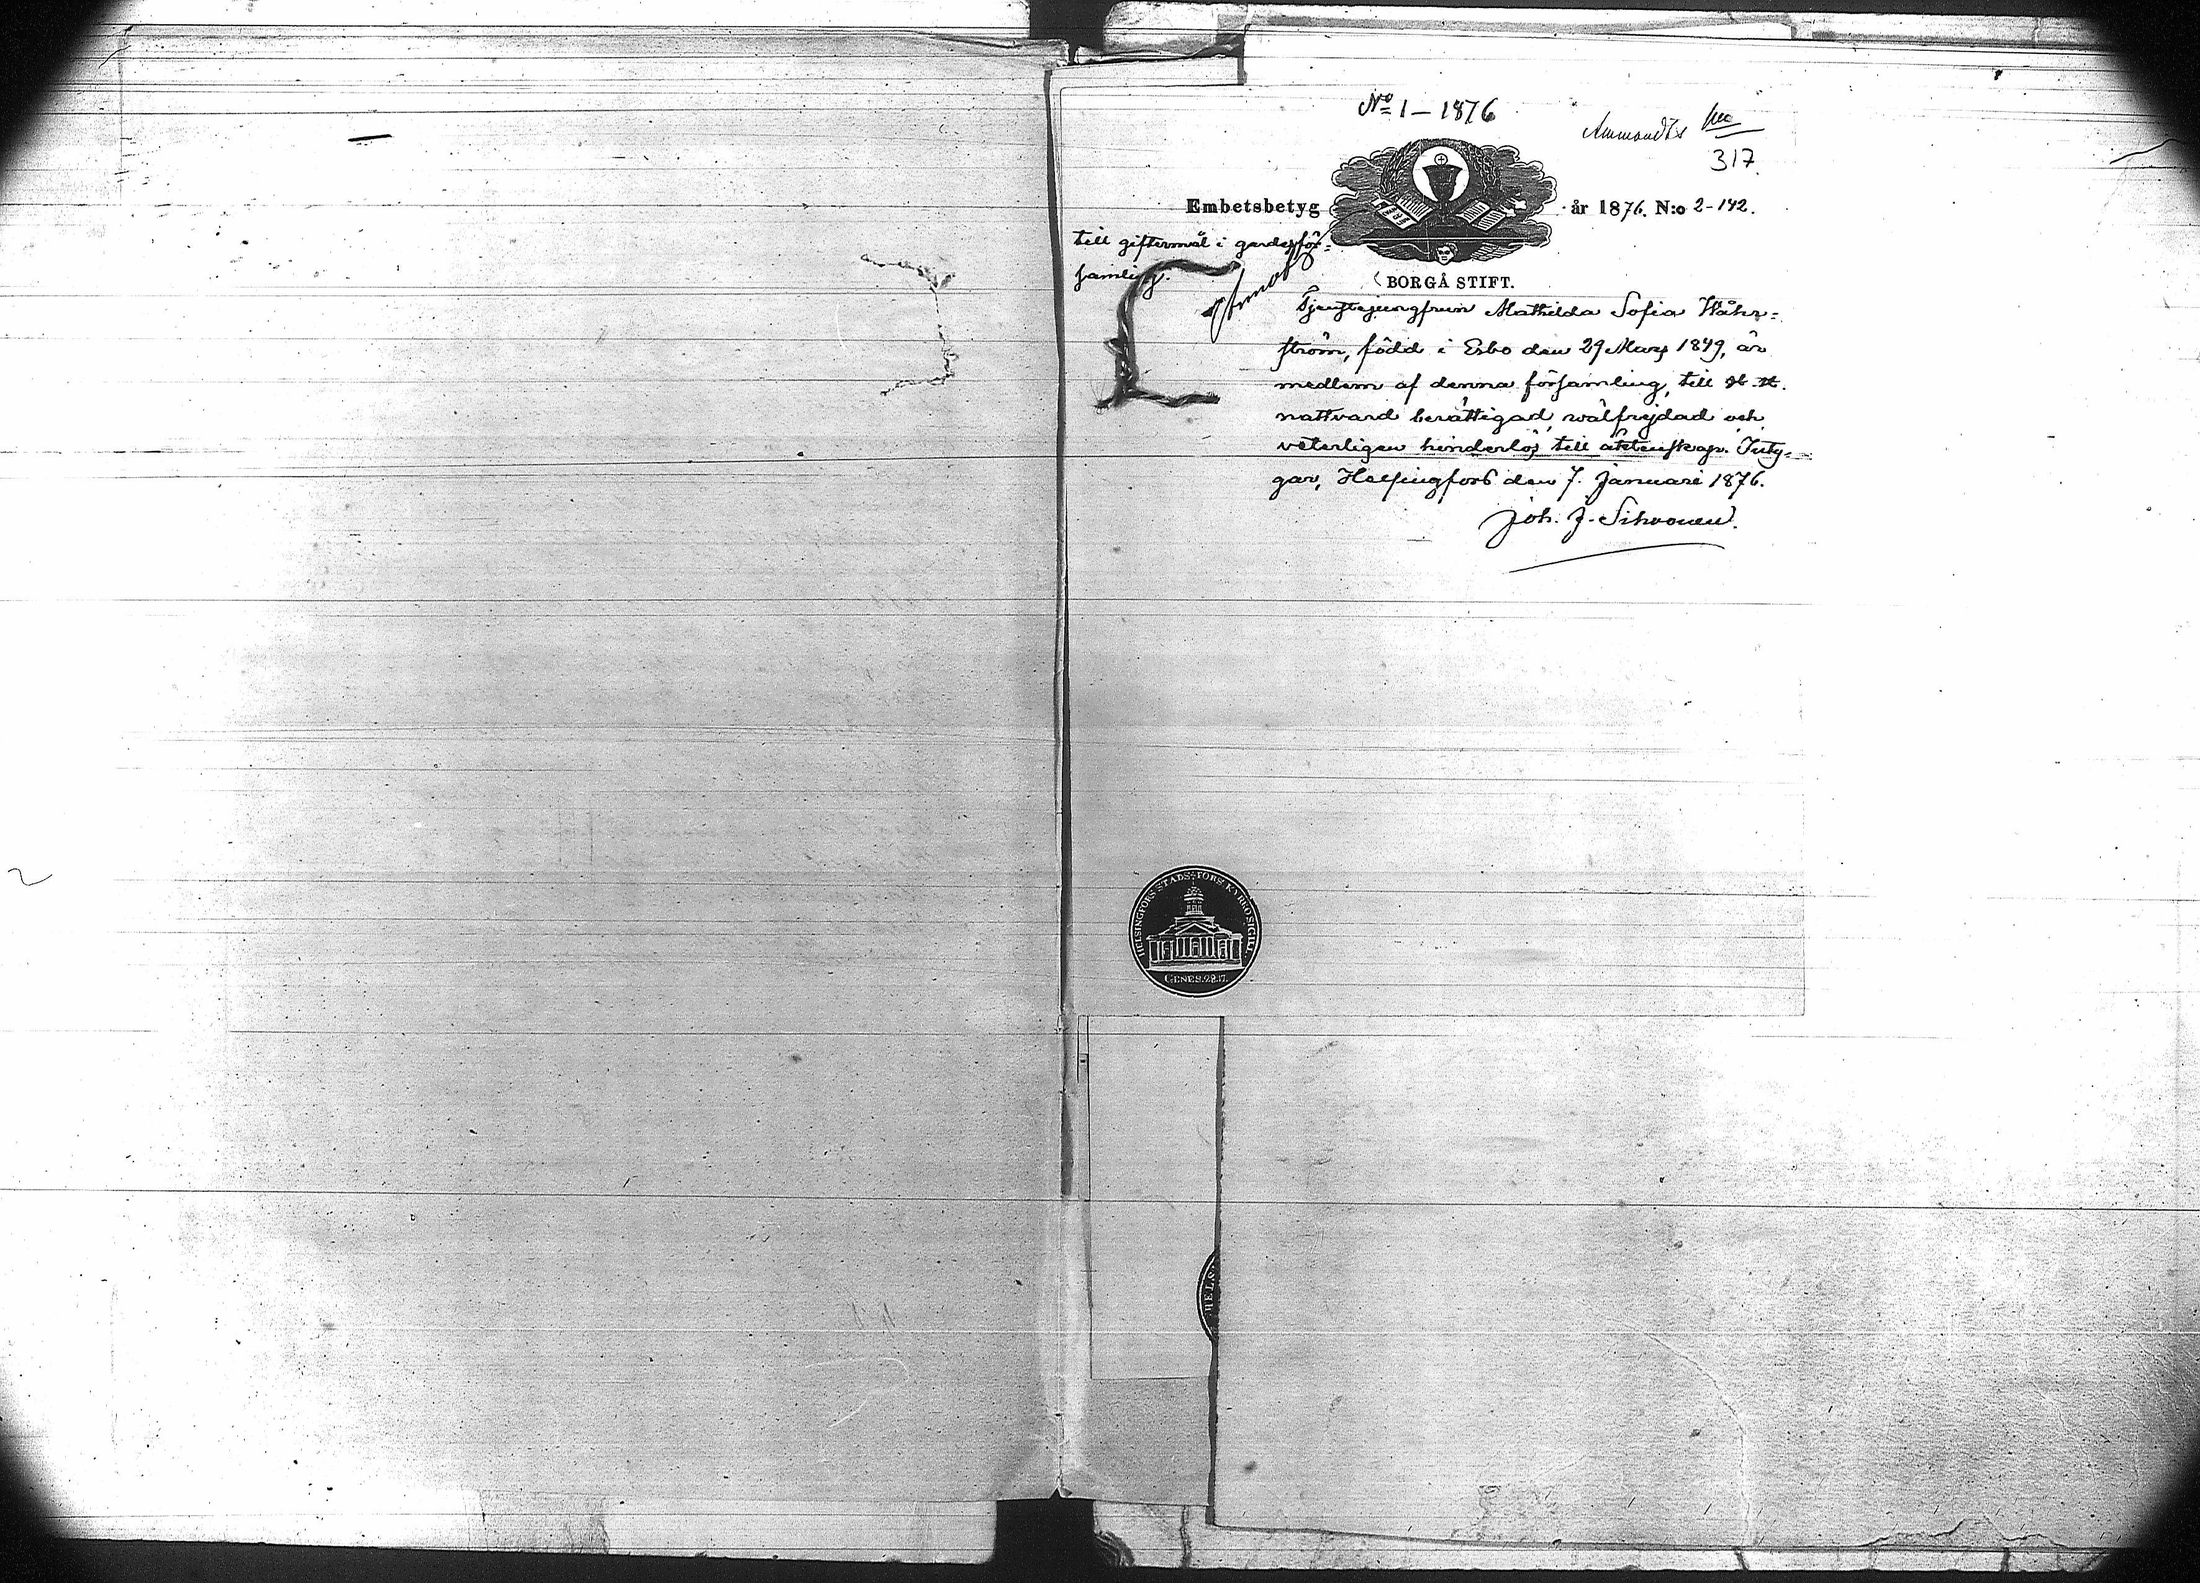 Nº 1 – 1876
317.
Embetsbetyg
år 1876. N:o 2-142.
till giftermål i gardesför-
samling.
BORGÅ STIFT.
Tjenstejungfrun Mathilda Sofia
ström, född i Esbo den 29 Mars 1849, är
medlem af denna församling, till H. H.
nattvard berättigad, wälfrejdad och
veterligen hinderlös till äktenskap. Inty-
gar, Helsingfors den 7. Januari 1876.
Joh. J. Sihvonen.
HELSINGFORS STADS FÖRS. KYRKO SIGILL
GENES. 28.17.
HELS